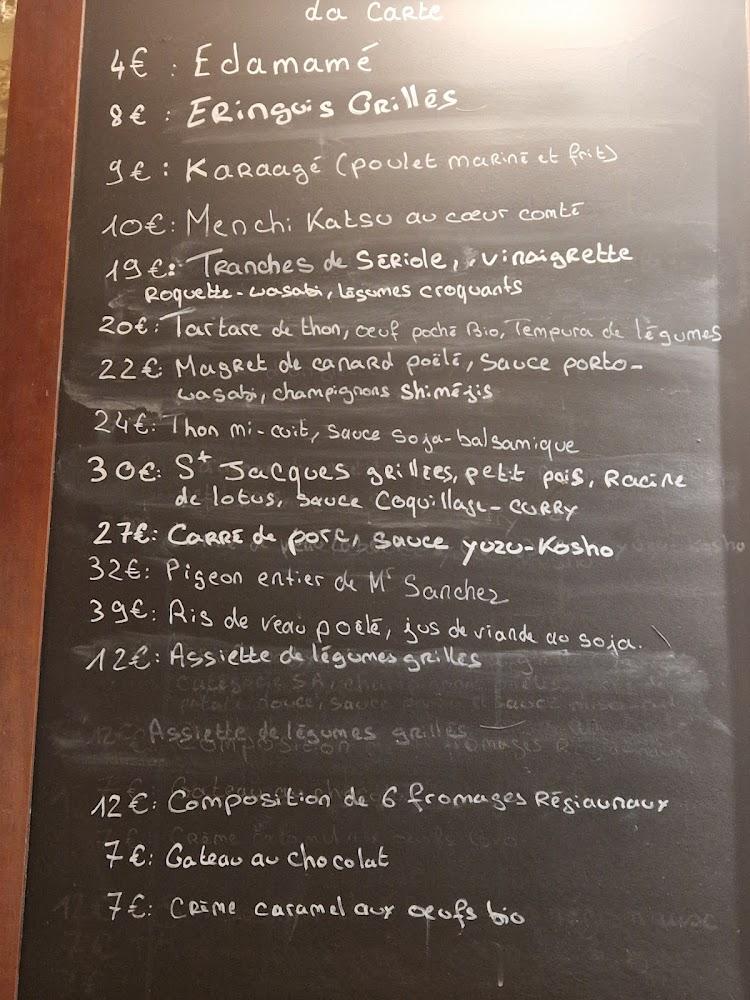 La Carte
4€ : Edamamé
8€ : Eringuis Grillés
9€ : Karaagé (poulet mariné et frit)
10€: Menchi Katsu au cœur comté
19€: Tranches de Sériole, vinaigrette
Roquette-wasabi, légumes croquants
20€: Tartare de thon, œuf poché Bio, Tempura de légumes
22€: Magret de canard poêlé, Sauce porto-
wasabi, champignons Shiméjis
24€: Thon mi-cuit, sauce soja-balsamique
30€: St Jacques grillées, petit pois, Racine
de lotus, sauce Coquillage-curry
27€: Carré de porc, sauce yuzu-Kosho
32€: Pigeon entier de Mr Sanchez
39€: Ris de veau poêlé, jus de viande au soja.
12€: Assiette de légumes grillés
Assiette de légumes grillés
12€: Composition de 6 fromages Régiaunaux
7€: Gateau au chocolat
7€: Crème caramel aux œufs bio